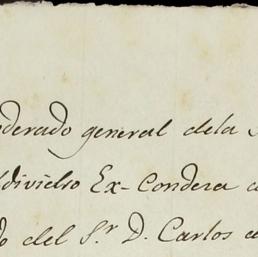 oderado general dela
ldivielso Ex-Condera
do del S.r D. Carlos